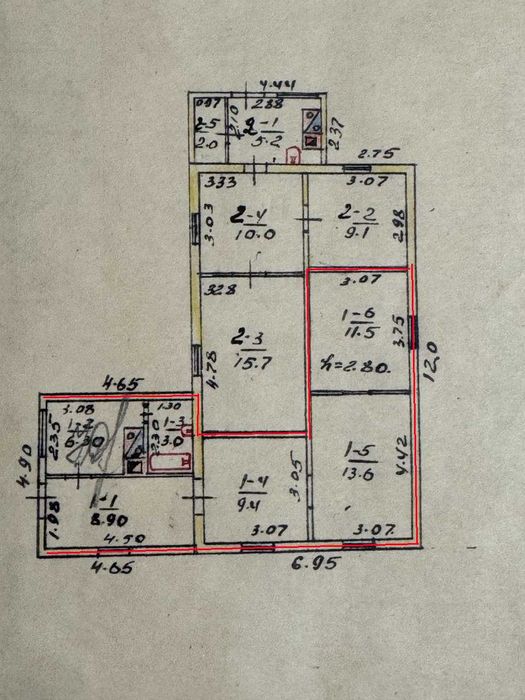 4.44
0.97 2.10 2.88
2-5 2-1
2.0 5.2 2.37
2.75
3.33 3.07
2-4 2-2
3.03 10.0 9.1 2.98
3.28 3.07
1-6
2-3 11.5 3.75
15.7
4.78 h=2.80. 12.0
4.65
3.08 1.30
1-2 1-3
2.35 6.30 2.30 3.0
1-5
13.6 4.42
4.90 1-4 3.05
9.4
-1
1.98 8.90
4.50 3.07 3.07
4.65 6.95